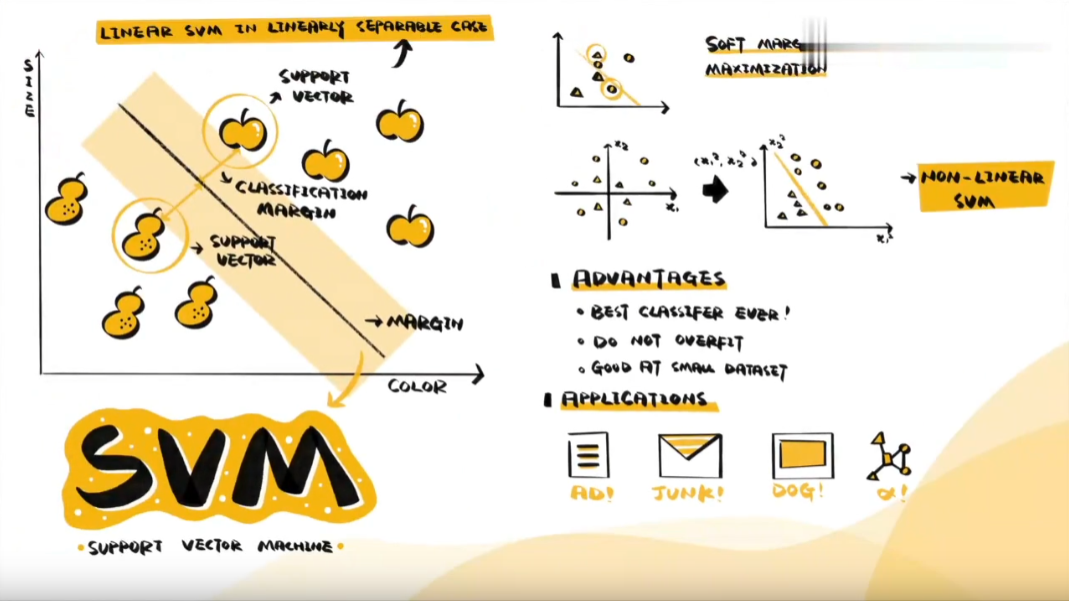 LINEAR SVM IN LINEARLY SEPARABLE CASE
SIZE
SUPPORT
VECTOR
CLASSIFICATION
MARGIN
SUPPORT
VECTOR
MARGIN
COLOR
SVM
SUPPORT VECTOR MACHINE
SOFT MARG
MAXIMIZATION
x₂
x₁
(x₁², x₂²)
x₂²
x₁²
NON-LINEAR
SVM
ADVANTAGES
• BEST CLASSIFER EVER!
• DO NOT OVERFIT
• GOOD AT SMALL DATASET
APPLICATIONS
AD!
JUNK!
DOG!
α!